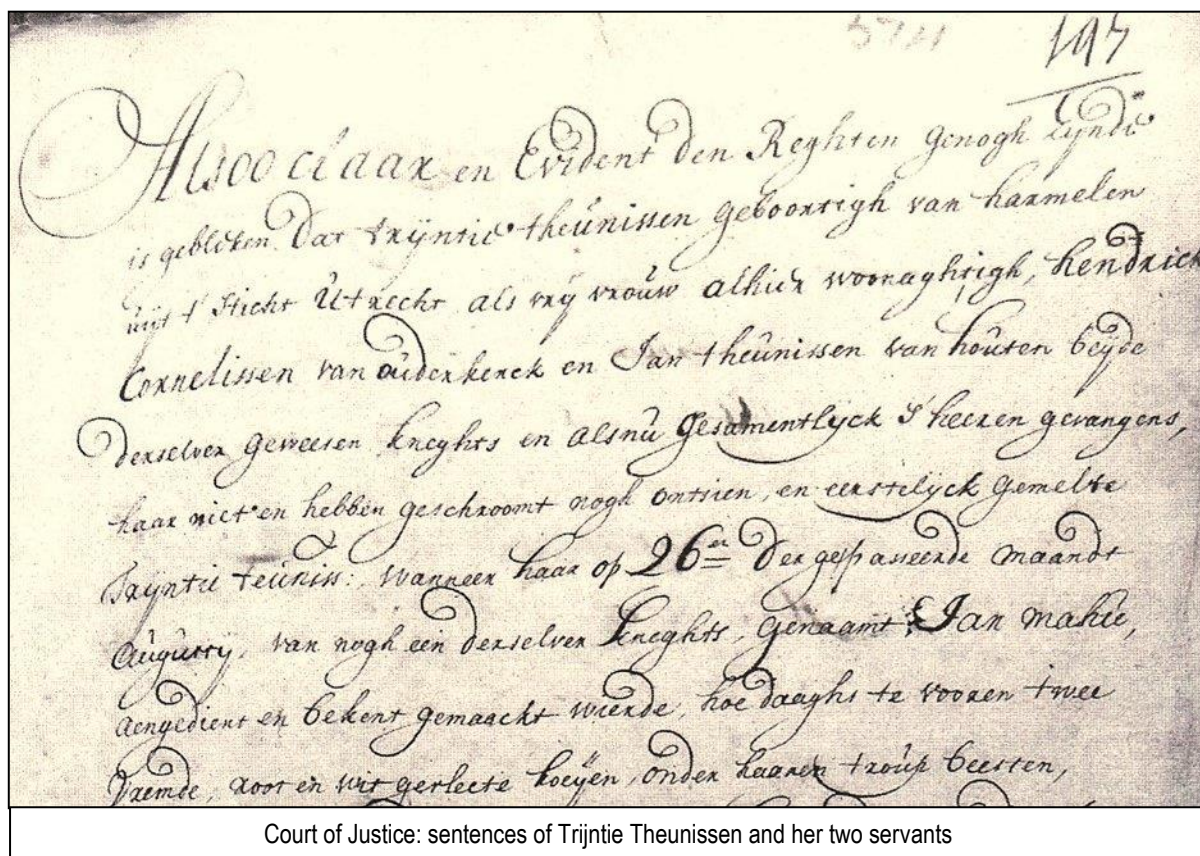 197
Alsoo claar en Evident den Reghten genogh zijnde
is gebleken Dat trijntie theunissen geboortigh van harmelen
uijt t Sticht Utrecht als vrij vrouw alhier woonaghtigh, hendrick
Cornelissen van ouderkerck en Jan theunissen van houten beijde
derselver geweesen kneghts en alsnu gesamentlijck S'heeren gevangens,
haar niet en hebben geschroomt nogh ontsien, en eerstelijck gemelte
Trijntie teuniss: wanneer haar op 26en der gepasseerde maandt
Augusty, van nogh een derselver kneghts, genaamt, Jan mahie,
aengedient en bekent gemaackt wierde, hoe daaghs te vooren twee
vremde, root en wit gerleete koeijen, onder haaren troup beesten,
Court of Justice: sentences of Trijntie Theunissen and her two servants